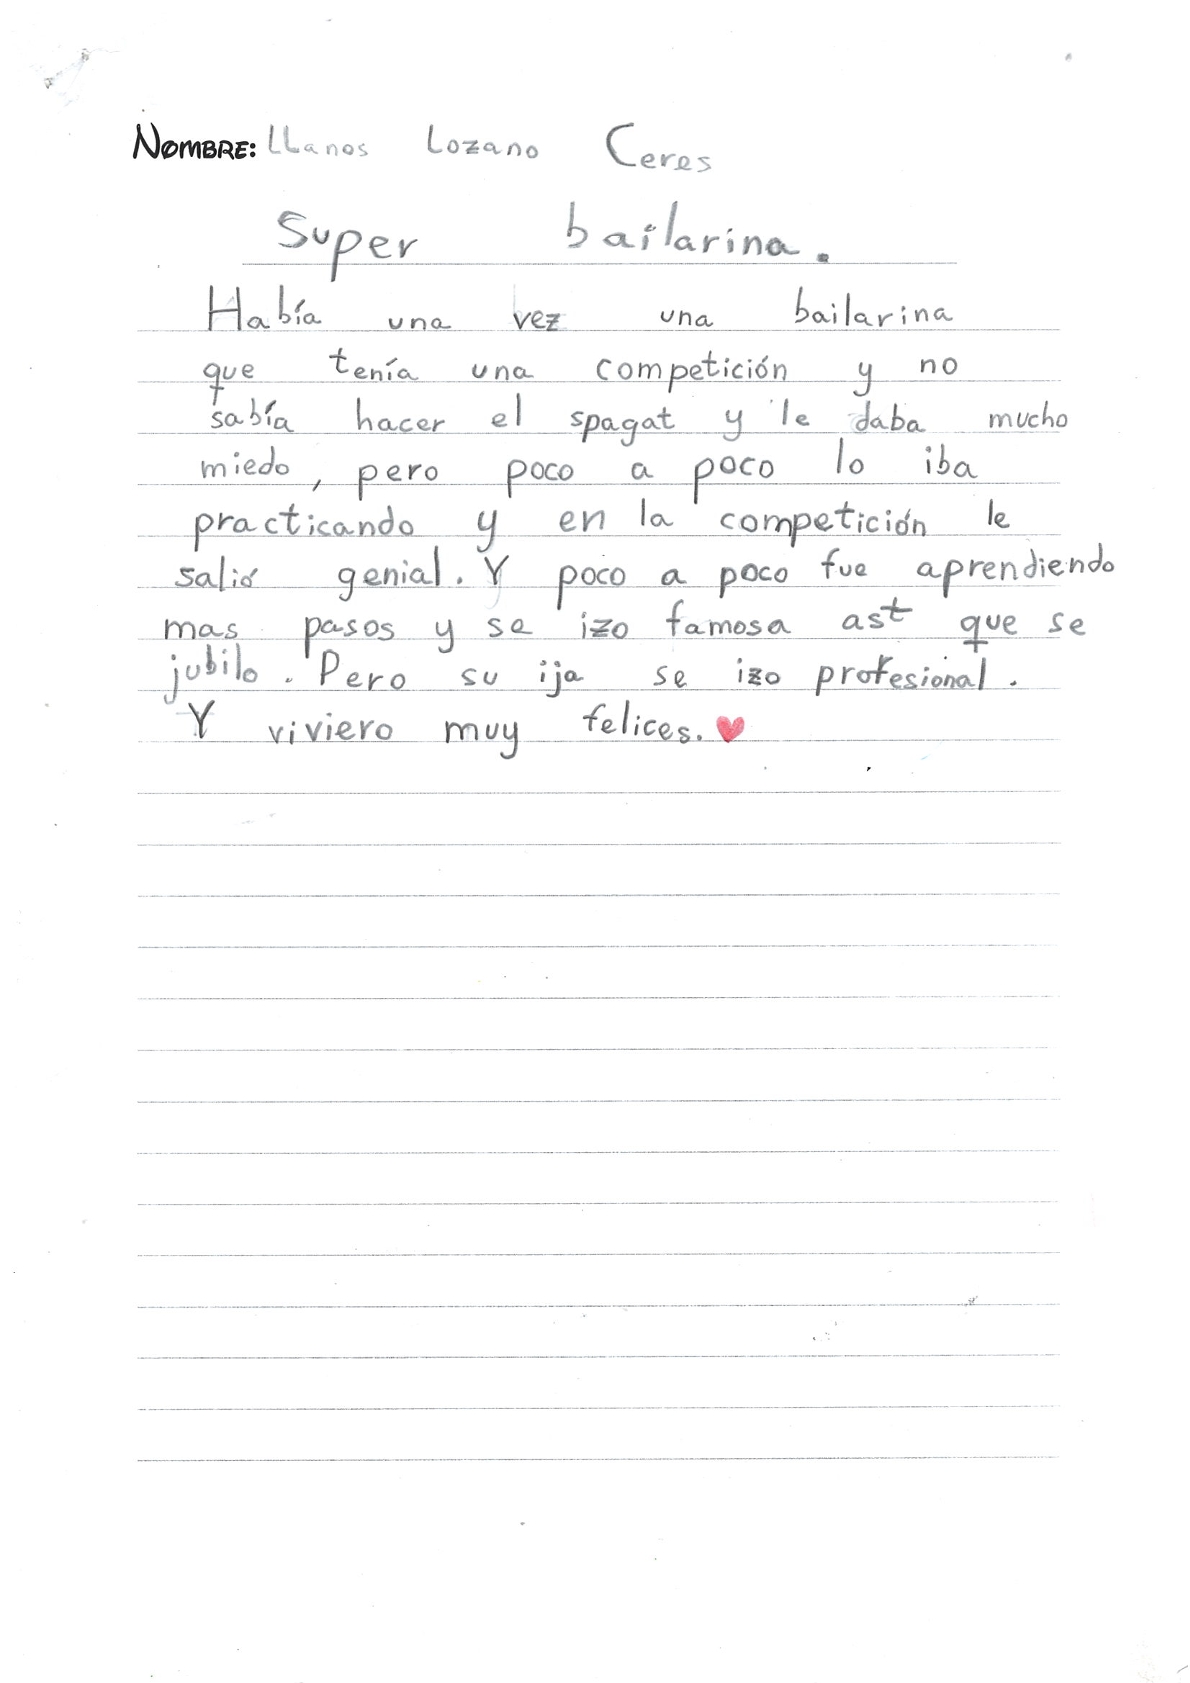 NOMBRE: LLanos Lozano Ceres
Super bailarina.
Había una vez una bailarina
que tenía una competición y no
sabía hacer el spagat y le daba mucho
miedo, pero poco a poco lo iba
practicando y en la competición le
salió genial. Y poco a poco fue aprendiendo
mas pasos y se izo famosa así que se
jubilo. Pero su ija se izo profesional.
Y viviero muy felices.